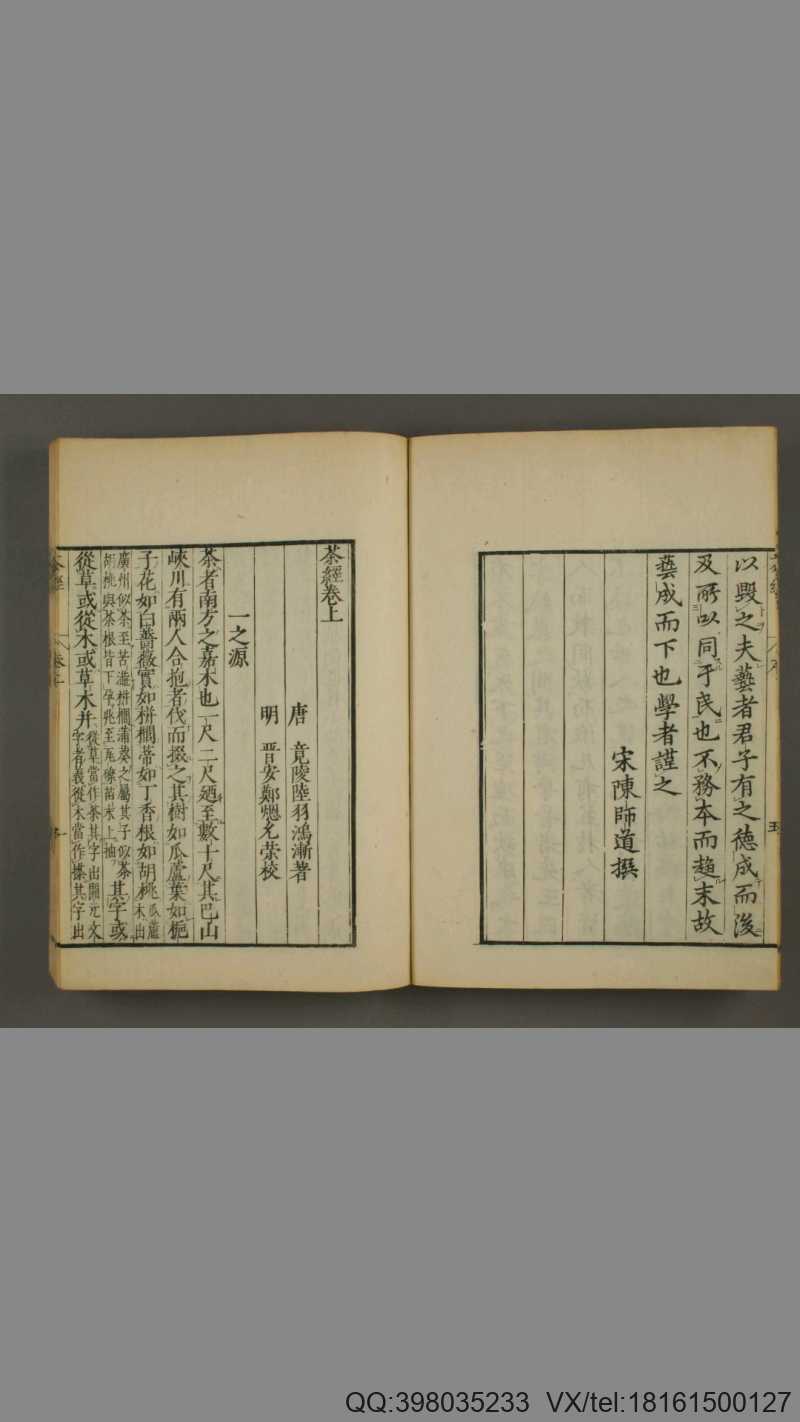 以毀之夫藝者君子有之德成而後
及所以同于民也不務本而趨末故
藝成而下也學者謹之
宋陳師道撰
茶經卷上
唐 竟陵陸羽鴻漸著
明 晋安鄭熜允榮校
一之源
茶者南方之嘉木也一尺二尺廼至數十尺其巴山
峽川有兩人合抱者伐而掇之其樹如瓜蘆葉如梔
子花如白薔薇實如栟櫚蒂如丁香根如胡桃瓜蘆木出
廣州似茶至苦澁栟櫚蒲葵之屬其子似茶胡桃與茶根皆下孕兆至瓦礫苗木上抽其字或
從草或從木或草木并從草當作茶其字出開元文字者義從木當作㯟其字出
QQ:398035233 VX/tel:18161500127